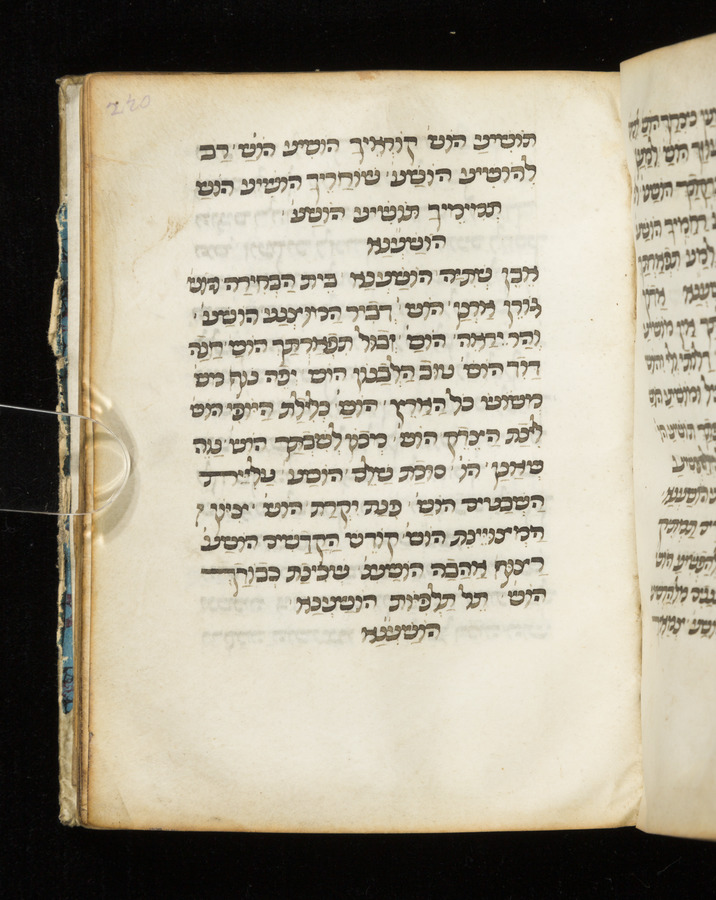 220
תושיע הוש׳ קוראיך הושיע הוש׳ רב
להושיע הושע׳ שוחריך הושיע הוש
תמימיך תושיע הושע׳
הושענא
אבן שתיה הושענא בית הבחירה הוש
גורן ארנן הוש׳ דביר המוצנע הושע׳
והר יראה הוש׳ זבול תפארתך הוש׳ חנה
דוד הוש׳ טוב הלבנון הוש׳ יפה נוף מש
משוש כל הארץ הוש׳ כלילת היופי הוש
לינת הצדק הוש׳ מכון לשבתך הוש׳ נוה
שאנן הו׳ סוכת שלם הושע׳ עליית
השבטים הוש׳ פנת יקרת הוש׳
המצויינת הוש׳ קודש הקדשים הושע׳
רצוף אהבה הושענ׳ שכינת כבודך
הוש׳ תל תלפיות הושענא
הושענא